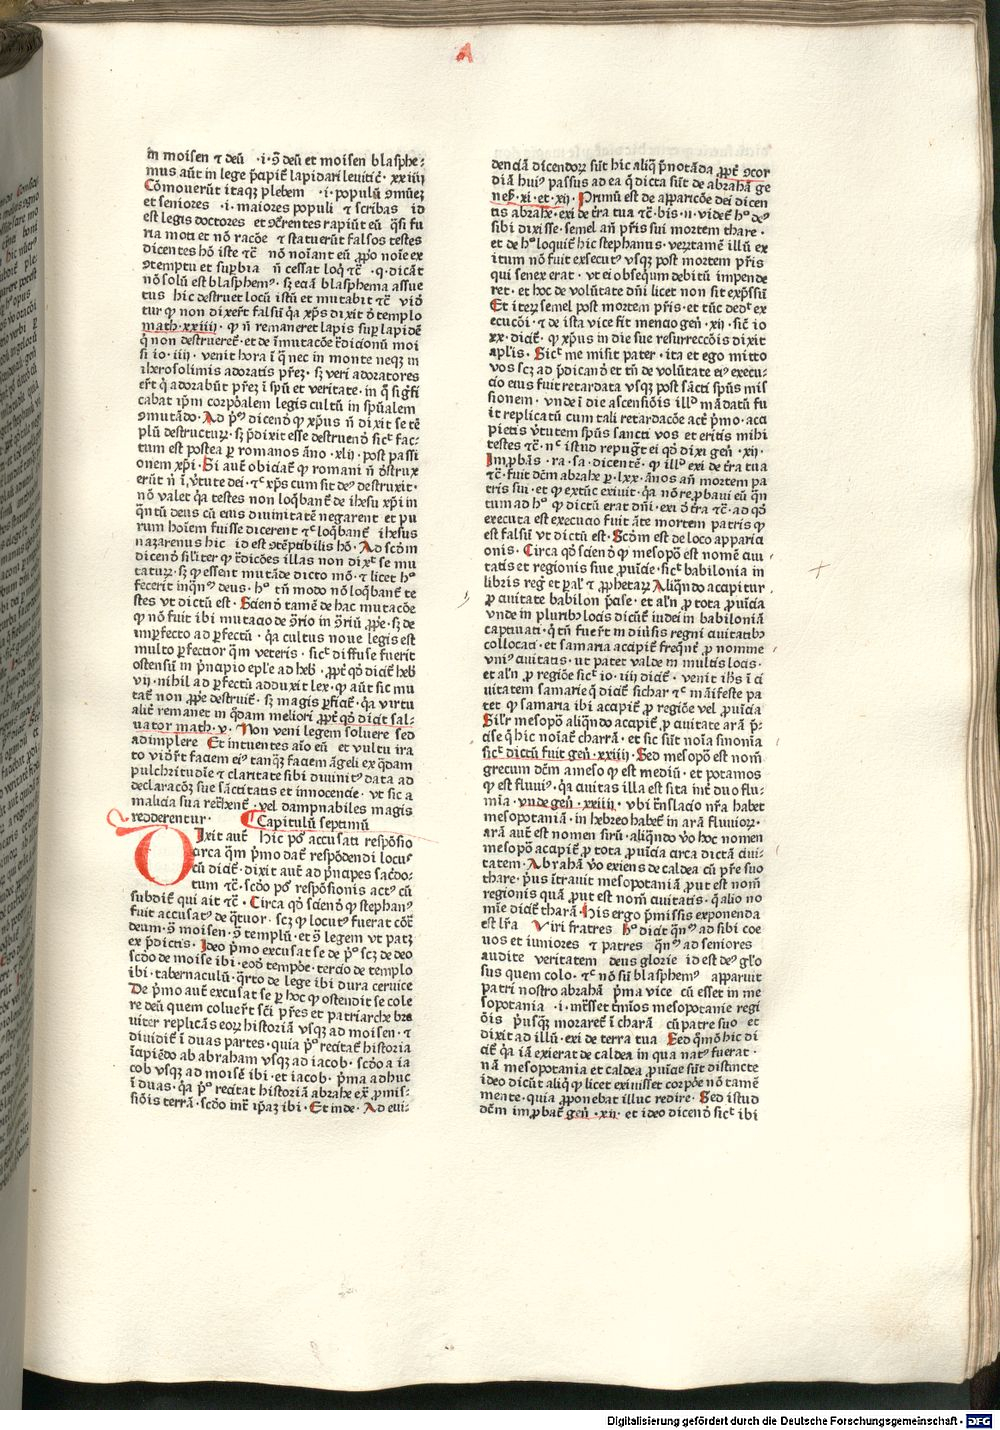 A
in moisen ⁊ deū · i · ꝯ deū et moisen blasphe⸗
mus aūt in lege p̄apiē lapidari leuiticꝰ · xxiiij
Cōmouerūt itaqꝫ plebem · i · populū ꝯmuēꝫ
et seniores · i · maiores populi ⁊ scribas id
est legis doctores et ꝯcrentes rapiūt eū q̄si fu
ria moti et nō racōe ⁊ statuerūt falsos testes
dicentes hō iste ⁊c̄ nō noīant eū ꝓpo noīe ex
ꝯtemptu et supbia n̄ cessat loq̄ ⁊c̄ · q · dicāt
nō solū est blasphemꝰ · sꝫ eciā blasphema assue
tus hic destruet locū istū et mutabit ⁊c̄ viō
tur ꝙ non dixerūt falsū q̄a xp̄s dixit ō templo
math · xxiiij · ꝙ n̄ remaneret lapis sup lapidē
q̄ non destrueret̄ · et de īmutacōe t̄dicionū moi
si io · iiij · venit hora ī q̄ nec in monte neqꝫ in
iherosolimis adoratis p̄reꝫ · sꝫ veri adoratores
er̄t q̄ adorabūt p̄reꝫ ī sp̄u et veritate · in q̄ sigf̄i
cabat ip̄m corpōalem legis cultū in sp̄ualem
ꝯmutādo · Ad pᵐ dicenō ꝙ xp̄us n̄ dixit se tē
plū destructuꝝ · sꝫ p̄dixit esse destruenō sicᵗ fac⸗
tum est postea ꝑ romanos āno · xlij · post passi
onem xp̄i · Si autē obiciat̄ ꝙ romani n̄ ōstrux
erūt n̄ ī ꝟtute dei · ⁊cᵗ xp̄s cum sit deꝰ destruxit ·
nō valet q̄a testes non loq̄bant̄ de ihesu xp̄i in
q̄ntū deus cū eius diuinitatē negarent et pu
rum hoīem fuisse dicerent ⁊cᵗ loq̄bant̄ ihesus
nazarenus hic id est ꝯtēptibilis hō · Ad scōm
dicenō siliter ꝙ t̄diciōes illas non dixᵗ se mu
tatuꝝ · sꝫ ꝙ essent mutāde dicto mō · ⁊ licet hᵒ
fecerit inq̄ntū deus · hᵒ tn̄ modo nō loq̄bant̄ te
stes vt dictū est · Scienō tamē de hac mutacōe
ꝙ nō fuit ibi mutacio de ꝯrio in ꝯriū ꝓpe · sꝫ de
imꝑfecto ad ꝑfectū · q̄a cultus noue legis est
multo ꝑfectior q̄m veteris · sicᵗ diffuse fuerit
ostensū in p̄ncipio eple ad heb · ꝓptᵉ qō dicit̄ heb
vij · nihil ad ꝑfectū adduxit lex · ꝙ aūt sic mu
tat̄ non ꝓpe destruit̄ · sꝫ magis ꝑficit̄ · q̄a virtu
alitᵉ remanet in q̄dam meliori ꝓptᵉ qō dicit sal⸗
uator math · v · Non veni legem soluere sed
adimplere Et intuentes aīo eū et vultu ira
to viōr̄t faciem eiꝰ tanq̄ꝫ faciem āgeli ex q̄dam
pulchritudīe ⁊ claritate sibi diuinitꝰ data ad
declaracōꝫ sue sāctitatis et innocencie · vt sic a
malicia sua ret̄herēt̄ · vel dampnabiles magis
redderentur · Capitulū septimū
Dixit autē hic pōᵗ accusati respōsio
circa q̄m p̄mo dat̄ respōdendi locus
cū dicit̄ · dixit autē ad p̄ncipes sac̄do⸗
tum ⁊c̄ · scōo poᵗ respōsionis actꝰ cū
subdit̄ qui ait ⁊c̄ · Circa qō scienō ꝙ stephanꝰ
fuit accusatꝰ de q̄tuor · scꝫ ꝙ locutꝰ fuerat cōᵗ
deum · ꝯ moisen · ꝯ templū · et ꝯ legem vt patꝫ
ex p̄dictis · Ideo p̄mo excusat se de pᵒ scꝫ de deo
scōo de moise ibi · eoō tempōe · tercio de templo
ibi · tabernaculū · q̄rto de lege ibi dura ceruice
De p̄mo autē excusat se ꝑ hoc ꝙ ostendit se cole
re deū quem coluerūt sc̄i p̄res et patriarche bre
uiter replicās eoꝝ historiā vsqꝫ ad moisen · ⁊
diuidit̄ ī duas partes · quia pᵒ recitat̄ historia
īcipiēdo ab abraham vsqꝫ ad iacob · scōo a ia
cob vsqꝫ ad moisē ibi · et iacob · p̄ma adhuc
ī duas · q̄a pᵒ recitat historiā abrahe extᵃ ꝓmis⸗
siōis terrā · scōo intᵃ ip̄aꝫ ibi · Et inde · Ad eui⸗
denciā dicendoꝝ sūt hic aliq̄ p̄notāda ꝓptᵉ ꝯcor
diā huiꝰ passus ad ea q̄ dicta sūt de abrahā ge
neẜ · xi · et · xij · Primū est de appariōe dei dicen
tis abrahe · exi de t̄ra tua ⁊c̄ · bis · n · videt̄ hᵒ deꝰ
sibi dixisse · semel an̄ p̄ris sui mortem thare ·
et de hᵒ loquit̄ hic stephanus · veꝝtamē illū ex
itum nō fuit exsecutꝰ vsqꝫ post mortem p̄ris
qui senex erat · vt ei obsequm debitū impende
ret · et hoc de volūtate dn̄i licet non sit exp̄ssū
Et iteꝝ semel post mortem p̄ris · et tūc dedᵗ ex
ecucōi · ⁊ de ista vice fit mencio gen̄ · xij · sic̄ io
xx · dicit̄ · ꝙ xp̄us in die sue resurreccōis dixit
aplis · Sicᵗ me misit pater · ita et ego mitto
vos scꝫ ad p̄dicanō et tn̄ de volūtate eiꝰ execu⸗
cio eius fuit retardata vsqꝫ post sācti sp̄us mis
sionem · vnde ī die ascensiōis illᵈ mādatū fu
it replicatū cum tali retardacōe actꝰ p̄mo · acci
pietis ꝟtutem sp̄us sancti vos et eritis mihi
testes ⁊c̄ · nᵉ istud repugt̄ ei qō dixi gen̄ · xij ·
Imꝓbās · ra · sa · dicentē · ꝙ illᵈ exi de t̄ra tua
⁊c̄ · fuit dēm abrahe ꝑ · lxx · ānos an̄ mortem pa
tris sui · et ꝙ extūc exiuit · q̄a nō reꝓbaui eū q̄n
tum ad hᵒ ꝙ dictū erat dn̄i · exi ō t̄ra ⁊c̄ · ad qō
executa est execucio fuit āte mortem patris ꝙ
est falsū vt dictū est · Scōm est de loco apparici
onis · Circa qō scienō ꝙ mesopoᵃ est nomē ciui ·
tatis et regionis siue ꝓuicie · sicᵗ babilonia in
libris regꝰ et palꝰ ⁊ ꝓphetaꝝ Aliq̄ndo accipitur ·
ꝑ ciuitate babilon p̄cise · et alr̄n ꝑ tota ꝓuīcia
vnde in pluribꝰ locis dicūt̄ iudei in babiloniā
captiuati · q̄ tn̄ fuerūt in diūsis regni ciuitatibꝰ
collocati · et samaria accipit̄ freq̄nt̄ ꝑ nomine
vniꝰ ciuitatis · ut patet valde in multis locis ·
et alr̄n ꝑ regiōe sicᵗ io · iiij dicit̄ · venit ihs̄ ī ci
uitatem samarie q̄ dicit̄ sichar ⁊cᵗ māifeste pa
tet ꝙ samaria ibi accipit̄ ꝑ regiōe vel ꝓuīcia
Silr̄ mesopoᵃ aliq̄ndo accipit̄ ꝑ ciuitate arā p̄⸗
cise q̄ hic noīat̄ charrā · et sic sūt noīa sinonīa
sicᵗ dictū fuit gen̄ · xxiiij · Sed mesopoᵃ est nom̄
grecum dēm a meso ꝙ est mediū · et potamos
ꝙ est fluuiꝰ · q̄a ciuitas illa est sita intᵉ duo flu⸗
mīa · vnde gen̄ · xxiiij · vbi t̄nslacio nr̄a habet
mesopotaniā · in hebreo habet̄ in arā fluuioꝝ ·
arā autē est nomen sirū · aliq̄ndo ꝟo hoc nomen
mesopoᵃ accipit̄ ꝑ tota ꝓuīcia circa dictā ciui⸗
tatem · Abrahā ꝟo exiens de caldea cū p̄re suo
thare · p̄us ītrauit mesopotaniā ꝓut est nom̄
regionis quā ꝓut est nom̄ ciuitatis · q̄ alio no
mīe dicit̄ charā · His ergo p̄missis exponenda
est lr̄a Viri fratres hᵒ dicit q̄ntꝰ ad sibi coe
uos et iuniores ⁊ patres q̄ntꝰ ad seniores
audite veritatem deus glorie id est deꝰ glō
sus quem colo · ⁊cᵗ nō sū blasphemꝰ apparuit
patri nostro abrahā p̄ma vice cū esset in me
sopotania · i · intᵃsset t̄mios mesopotanie regi
ōis p̄usq̄ꝫ moraret̄ ī charā cū patre suo et
dixit ad illū · exi de terra tua Sed q̄mō hic di
cit̄ q̄a iā exierat de caldea in qua natꝰ fuerat ·
nā mesopotania et caldea ꝓuicie sūt distincte
ideo dicūt aliq̄ ꝙ licet exiuisset corpōe nō tamē
mente · quia ꝓponebat illuc redire · Sed istud
dēm imꝓbat̄ gen̄ · xij · et ideo dicenō sicᵗ ibi
Digitalisierung gefördert durch die Deutsche Forschungsgemeinschaft - DFG